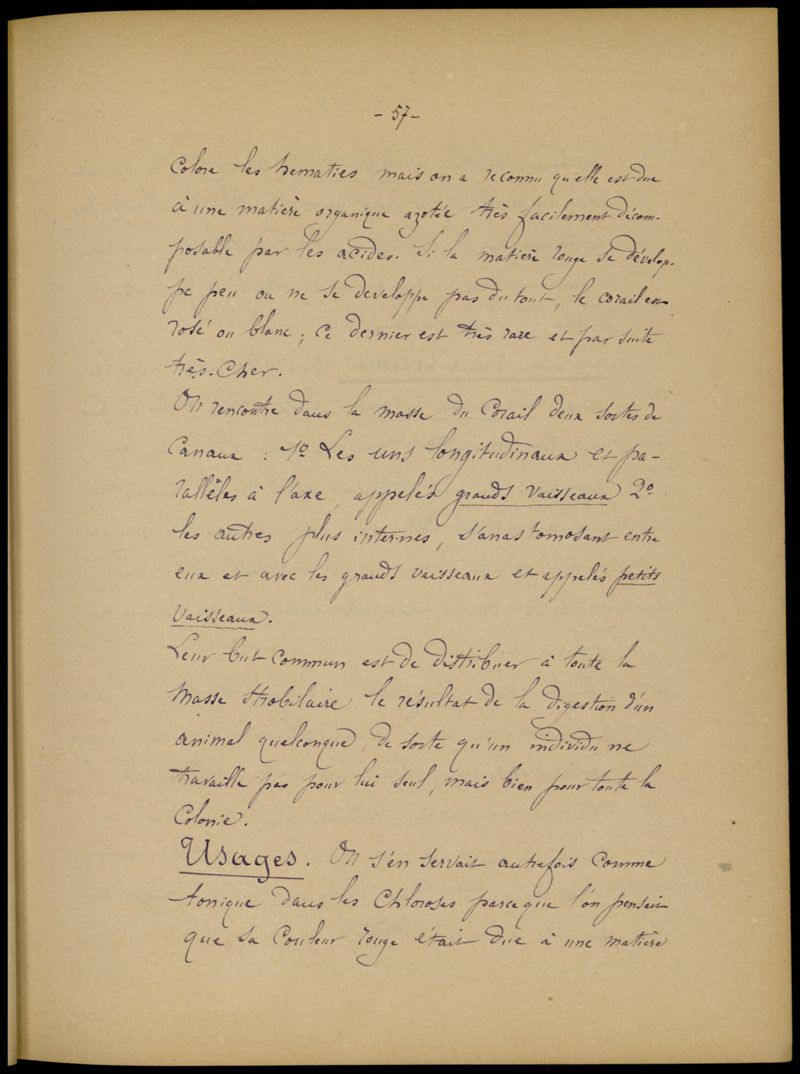 - 57 -
colore les hematies mais on a reconnu qu'elle est due
à une matière organique azotée très facilement décom-
posable par les acides. Si la matière rouge se dévelop-
pe peu ou ne se developpe pas du tout, le corail est
rosé ou blanc ; ce dernier est très rare et par suite
très-cher.
On rencontre dans la masse du Corail deux sortes de
Canaux : 1º Les uns longitudinaux et pa-
rallèles à l'axe, appelés grands vaisseaux 2º
les autres plus internes, s'anastomosant entre
eux et avec les grands vaisseaux et appelés petits
vaisseaux.
Leur but commun est de distribuer à toute la
masse strobilaire le résultat de la digestion d'un
animal quelconque, de sorte qu'un individu ne
travaille pas pour lui seul, mais bien pour toute la
Colonie.
Usages. On s'en servait autrefois comme
tonique dans les Chloroses parceque l'on pensait
que sa couleur rouge était due à une matière